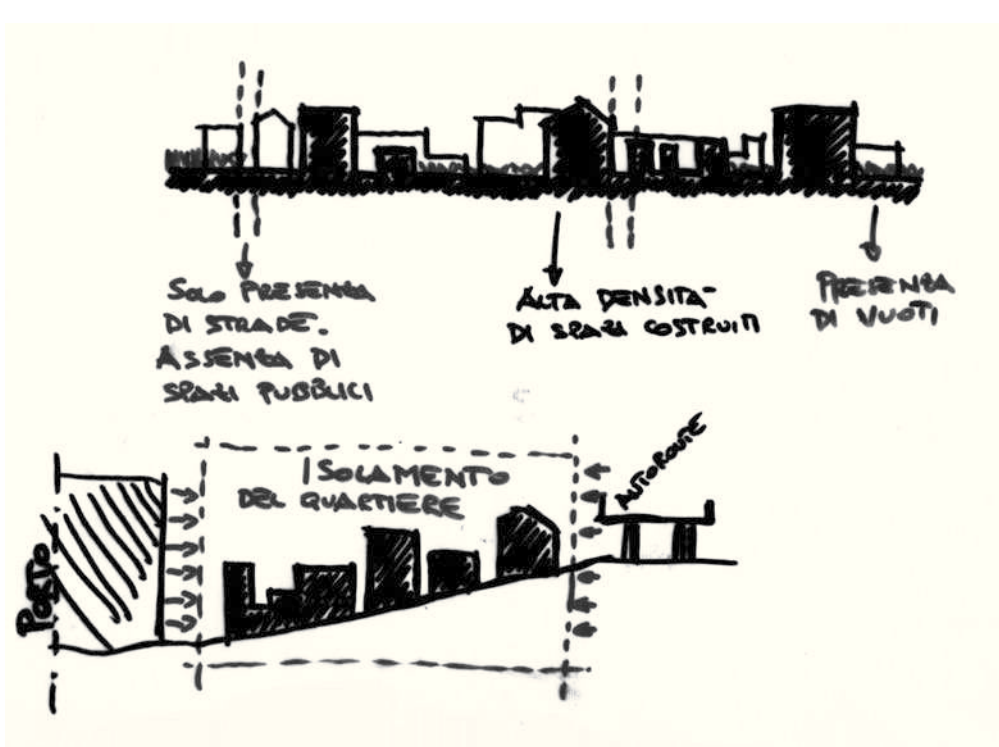 SOLO PRESENZA
DI STRADE.
ASSENZA DI
SPAZI PUBBLICI
ALTA DENSITA'
DI SPAZI COSTRUITI
PRESENZA
DI VUOTI
ISOLAMENTO
DEL QUARTIERE
AUTOROUTE
PORTO